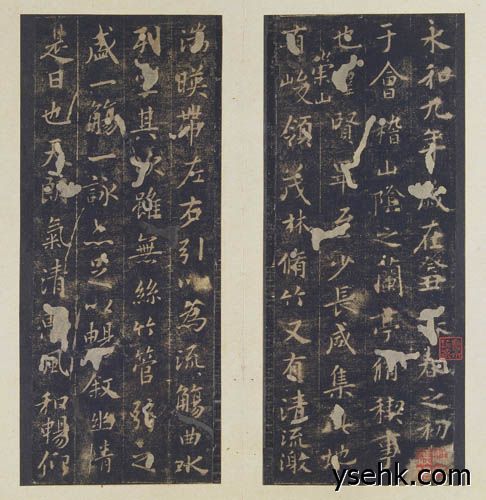 永和九年歲在癸丑暮春之初
于會稽山陰之蘭亭脩稧事
也羣賢畢至少長咸集此地
崇山
有峻領茂林脩竹又有清流激
湍暎帶左右引以為流觴曲水
列坐其次雖無絲竹管弦之
盛一觴一詠亦足以暢敘幽情
是日也天朗氣清惠風和暢仰
ysehk.com